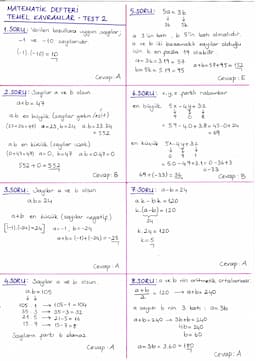 MATEMATİK DEFTERİ
TEMEL KAVRAMLAR - TEST 2
1.SORU: Verilen koşullara uygun sayılar,
-1 ve -10 sayılarıdır.
(-1).(-10)=10
Cevap: A
2.SORU: Sayılar a ve b olsun.
a+b=47
a.b en büyük (sayılar yakın/eşit)
(23+24=47) a=23, b=24 a.b=23.24
=552
a.b en küçük (sayılar uzak)
(0+47=47) a=0, b=47 a.b=0.47=0
552+0=552
Cevap: B
3.SORU: Sayılar a ve b olsun.
a.b=24
a+b en küçük (sayılar negatif)
[(-1).(-24)=24] a=-1, b=-24
a+b=(-1)+(-24)=-25
Cevap: A
4.SORU: Sayılar a ve b olsun.
a.b=105
105 1 → 105-1=104
35 3 → 35-3=32
21 5 → 21-5=16
15 7 → 15-7=8
Sayıların farkı 8 olamaz.
Cevap: A
5.SORU: 5a=3b
3k 5k
a 3'ün katı, b 5'in katı olmalıdır.
a ve b iki basamaklı sayılar olduğu
için b en fazla 19 olabilir.
a=3k=3.19=57
b=5k=5.19=95
a+b=57+95=152
Cevap: E
6.SORU: x,y,z farklı rakamlar
en büyük 5x-4y+3z
9 0 8
=5.9-4.0+3.8=45-0+24
=69
en küçük 5x-4y+3z
0 9 1
=5.0-4.9+3.1=0-36+3
=-33
69-(-33)=
Cevap: B
7.SORU: a-b=24
a.k-b.k=120
k.(a-b)=120
24
k.24=120
k=5
Cevap: A
8.SORU: a ve b nin aritmetik ortalaması
a+b/2=120 → a+b=240
a sayısı b nin 3 katı: a=3b
a+b=240 → 3b+b=240
4b=240
b=60
a=3b=3.60=180
Cevap: A